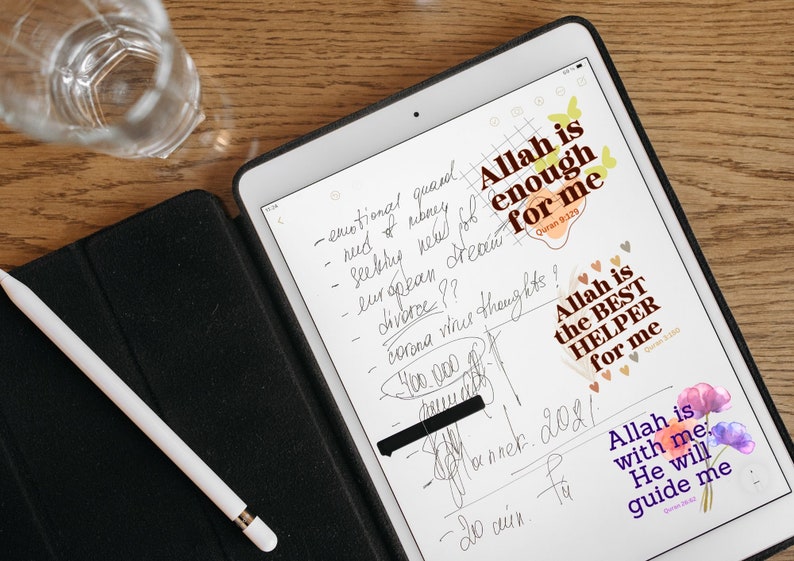 11:24
69 %
- emotional guard
- need of money
- seeking new job
- european dream
- divorce??
- corona virus thoughts?
- 400.000
- payment
Planner 2021.
- 20 min.
Allah is
enough
for me
Quran 9:129
Allah is
the BEST
HELPER
for me
Quran 3:150
Allah is
with me,
He will
guide me
Quran 26:62